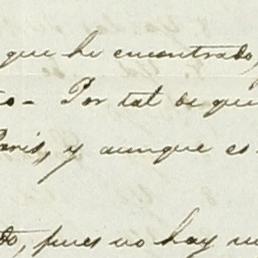 que he encontrado,
Por tal de que
Paris, y aunque es
pues no hay